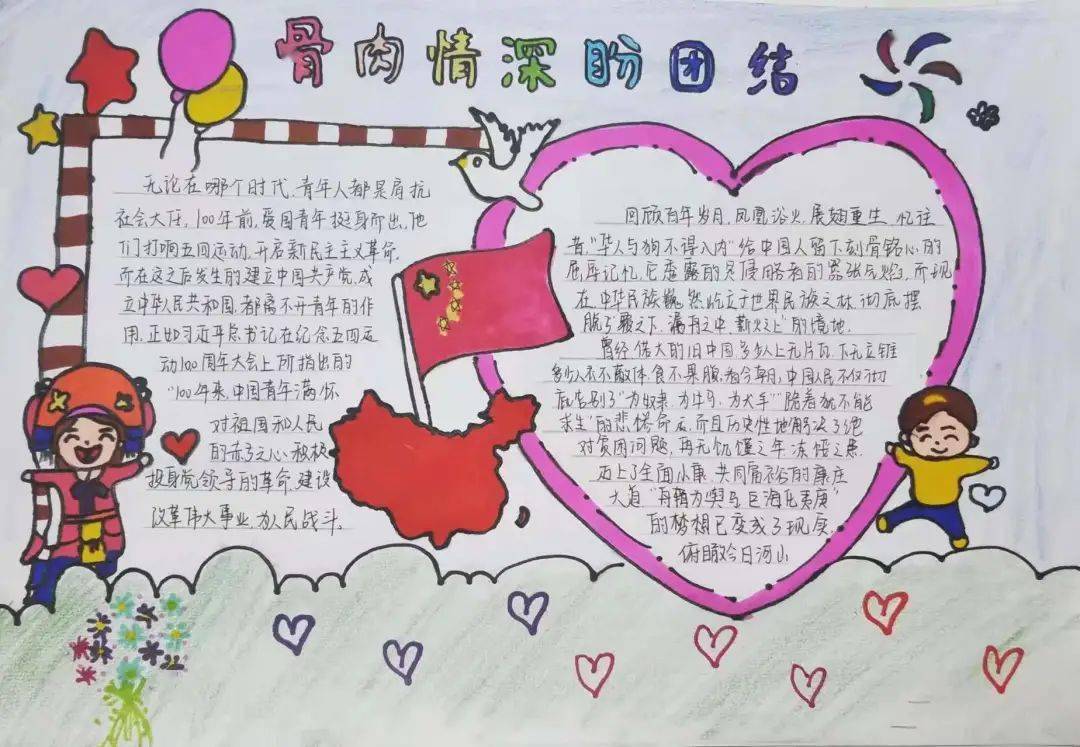 骨肉情深盼团结
无论在哪个时代,青年人都是肩抗
社会大任,100年前,爱国青年挺身而出,他
们打响五四运动,开启新民主主义革命,
而在这之后发生的建立中国共产党,成
立中华人民共和国,都离不开青年的作
用,正如习近平总书记在纪念五四运
动100周年大会上所指出的
“100年来,中国青年满怀
对祖国和人民
的赤子之心,积极
投身党领导的革命、建设
改革伟大事业,为人民战斗、
回顾百年岁月,凤凰浴火,展翅重生,忆往
昔,“华人与狗不得入内”给中国人留下刻骨铭心的
屈辱记忆,它香露的是侵略者的嚣张气焰,而现
在,中华民族巍然屹立于世界民族之林,彻底摆
脱了覆之下,漏舟之中,薪火之上”的境地.
曾经,偌大的旧中国,多少人上无片瓦,下无立锥
多少人衣不蔽体,食不果腹,看今朝,中国人民不仅彻
底告别了“为奴隶,为牛马,为犬羊”“跪着就不能
求生”的悲惨命运,而且历史性地解决了绝
对贫困问题,再无饥馑之年,冻馁之患.
迈上了全面小康、共同富裕的康庄
大道,
的梦想已变成了现实,
俯瞰今日河山